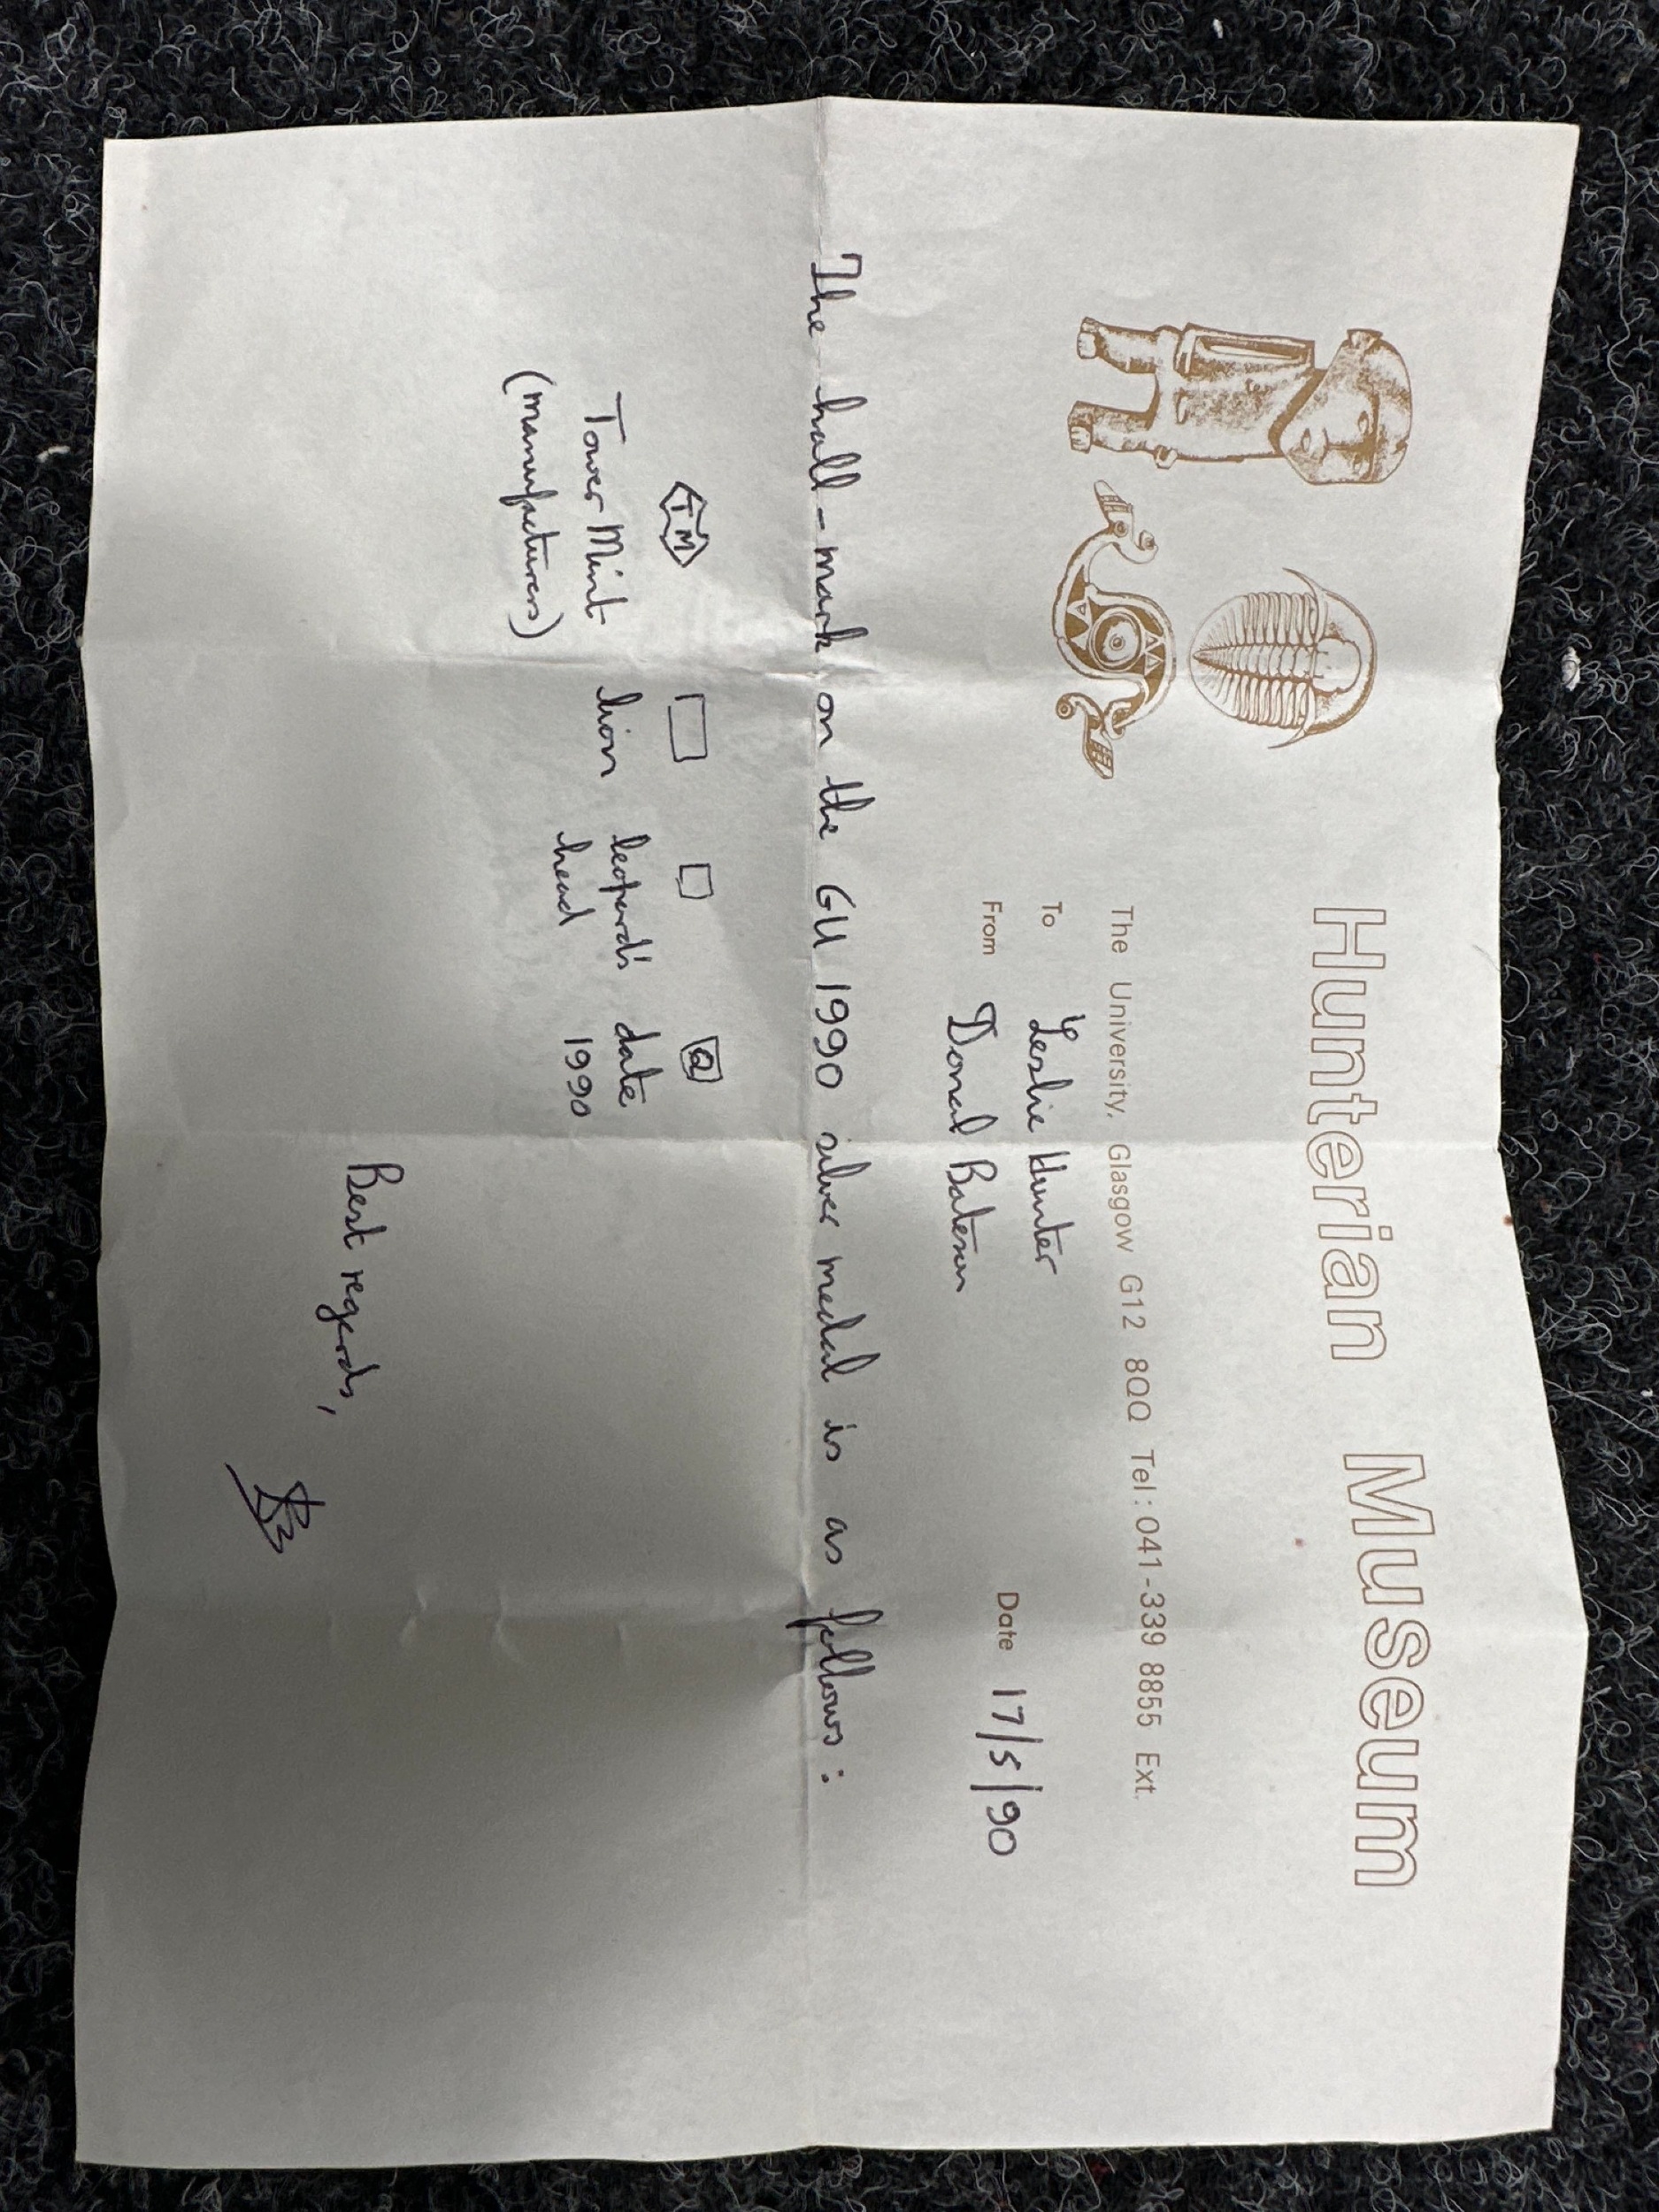 Hunterian Museum
The University, Glasgow G12 8QQ Tel: 041-339 8855 Ext.
To Leslie Hunter
From Donal Bateson Date 17/5/90
The hall-mark on the GU 1990 silver medal is as follows:
TM a
Tower Mint lion leopard's date
(manufacturers) head 1990
Best regards,